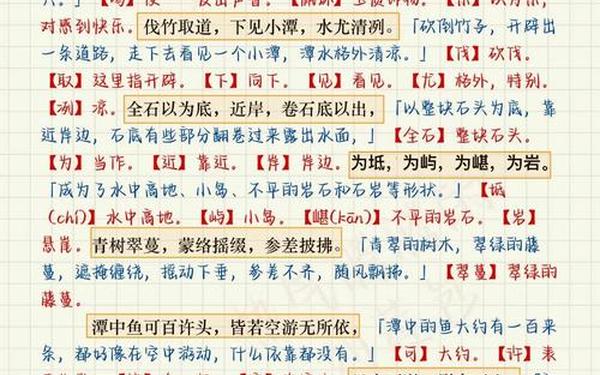 对感到快乐。伐竹取道，下见小潭，水尤清冽。「砍倒竹子，开辟出
一条道路，走下去看见一个小潭，潭水格外清凉。」【伐】砍伐。
【取】这里指开辟。【下】向下。【见】看见。【尤】格外，特别。
【冽】凉。全石以为底，近岸，卷石底以出，「以整块石头为底，靠
近岸边，石底有些部分翻卷过来露出水面，」【全石】整块石头。
【为】当作。【近】靠近。【岸】岸边。为坻，为屿，为嵁，为岩。
「成为了水中高地、小岛、不平的岩石和石岩等形状。」【坻
(chí)】水中高地。【屿】小岛。【嵁(kān)】不平的岩石。【岩】
悬崖。青树翠蔓，蒙络摇缀，参差披拂。「青翠的树木，翠绿的藤
蔓，遮掩缠绕，摇动下垂，参差不齐，随风飘拂。」【翠蔓】翠绿的
藤蔓。
潭中鱼可百许头，皆若空游无所依，「潭中的鱼大约有一百来
条，都好像在空中游动，什么依靠都没有。」【可】大约。【许】表